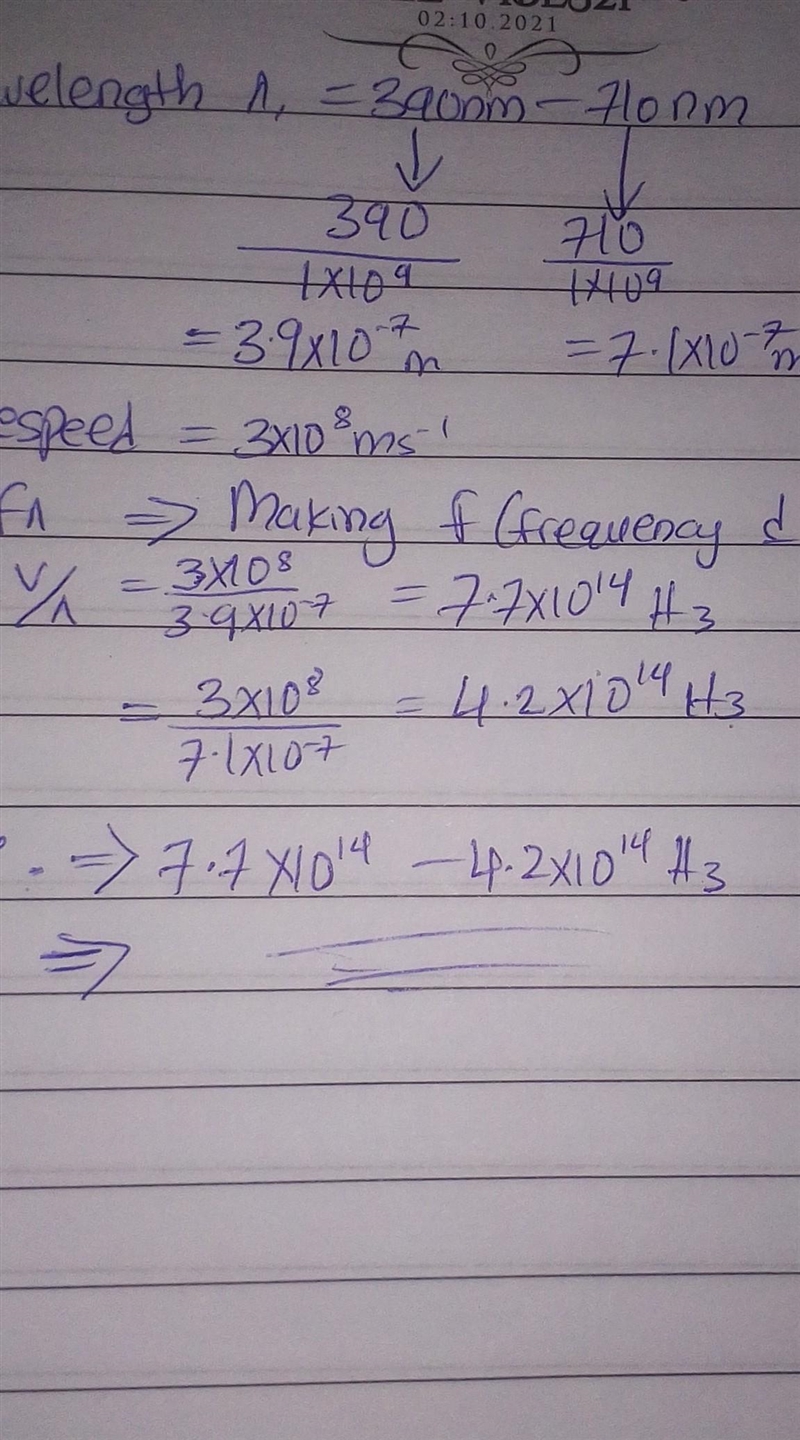 02:10.2021
velength λ, = 390nm - 710nm
390 710
1x10⁹ 1x10⁹
= 3.9x10⁻⁷m = 7.1x10⁻⁷m
espeed = 3x10⁸ms⁻¹
Fλ ⇒ Making f (frequency
V/λ = 3x10⁸/3.9x10⁻⁷ = 7.7x10¹⁴ Hz
= 3x10⁸/7.1x10⁻⁷ = 4.2x10¹⁴ Hz
. ⇒ 7.7x10¹⁴ - 4.2x10¹⁴ Hz
⇒